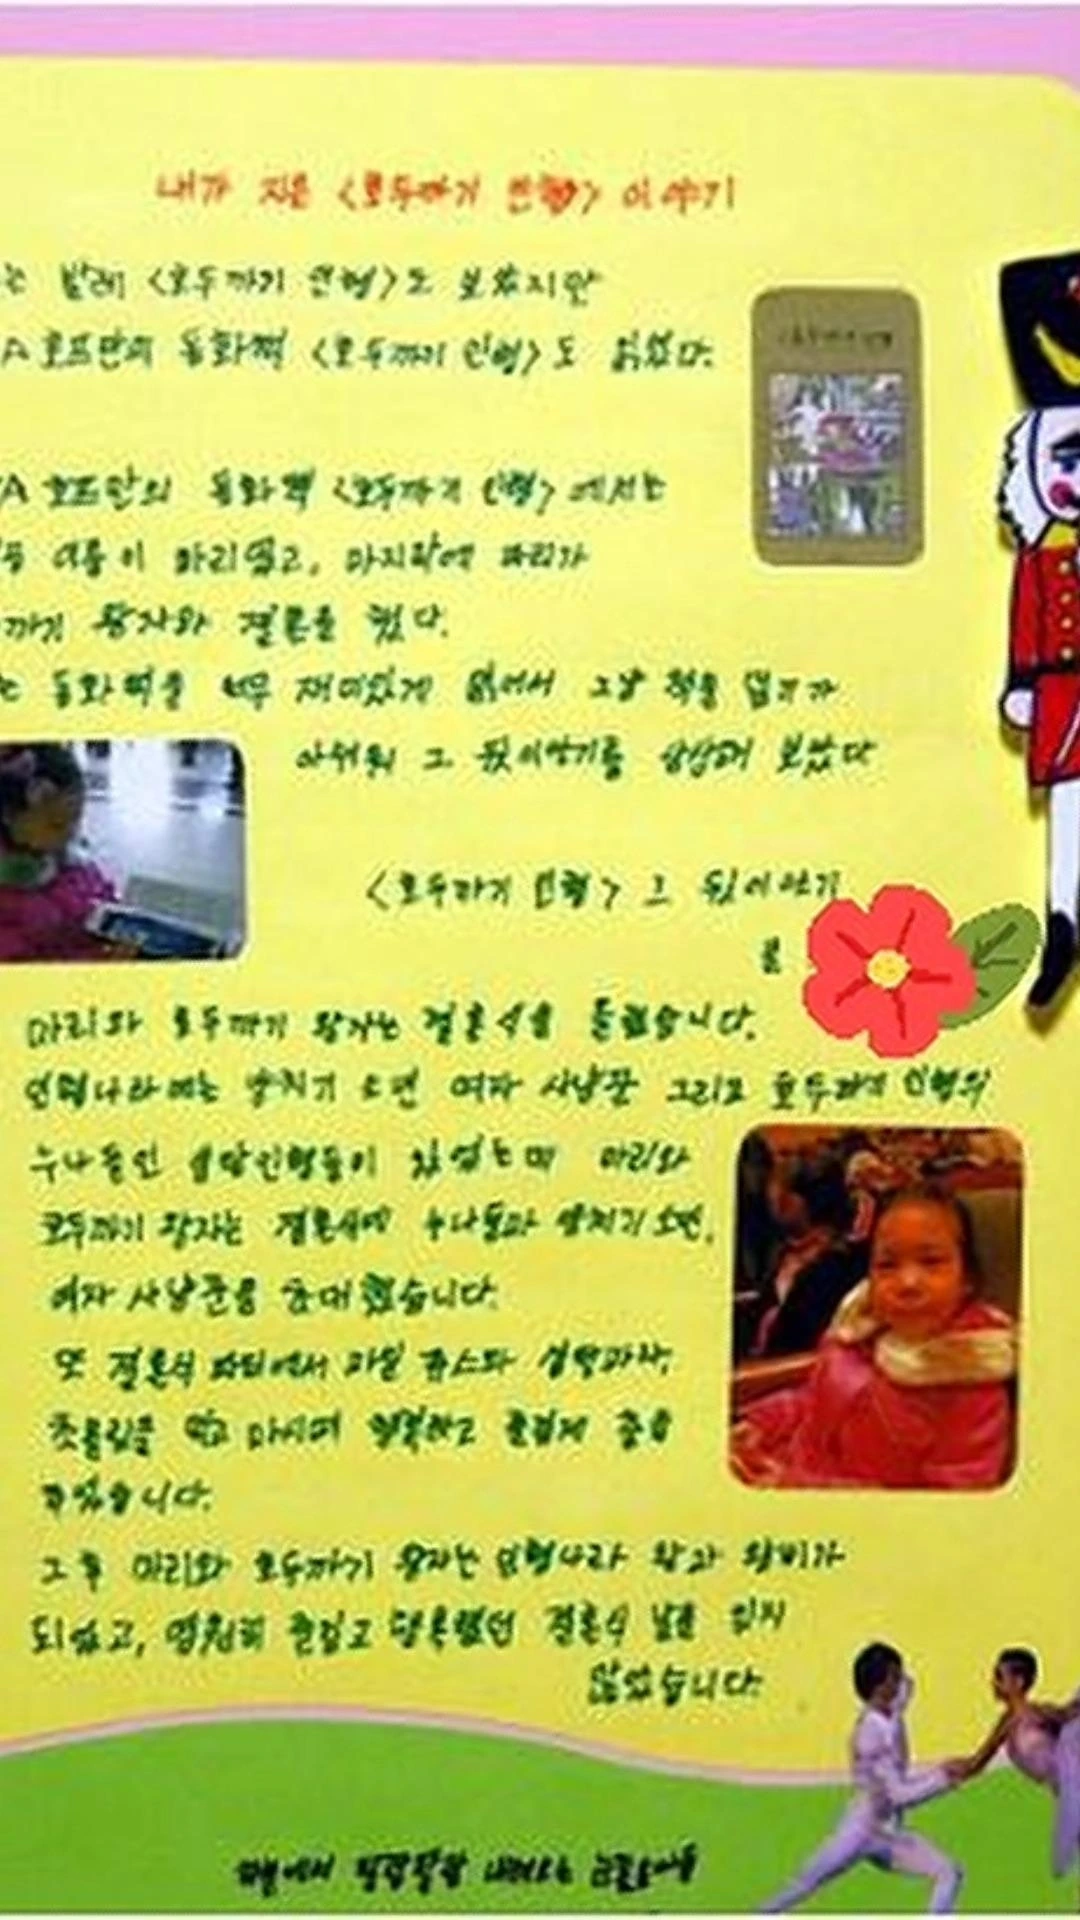 내가 지은 <호두까기 인형> 이야기
는 발레 <호두까기 인형>도 보았지만
A 호프만의 동화책 <호두까기 인형>도 읽었다.
A 호프만의 동화책 <호두까기 인형>에서는
이름이 마리였고, 마지막에 마리가
까기 왕자와 결혼을 했다.
는 동화책을 너무 재미있게 읽어서 그냥 책을 덮기가
아쉬워 그 뒷이야기를 상상해 보았다
<호두까기 인형> 그 뒷이야기
마리와 호두까기 왕자는 결혼식을 올렸습니다.
인형나라에는 양치기 소년 여자 사냥꾼 그리고 호두까기 인형의
누나들인 설탕인형들이 있었는데 마리와
호두까기 왕자는 결혼식에 누나들과 양치기 소년,
여자 사냥꾼을 초대했습니다.
또 결혼식 파티에서 과일 쥬스와 설탕과자,
초콜릿을 먹고 마시며 행복하고 즐겁게 춤을
추었습니다.
그 후 마리와 호두까기 왕자는 인형나라 왕과 왕비가
되었고, 영원히 즐겁고 행복했던 결혼식 날을 잊지
않았습니다.